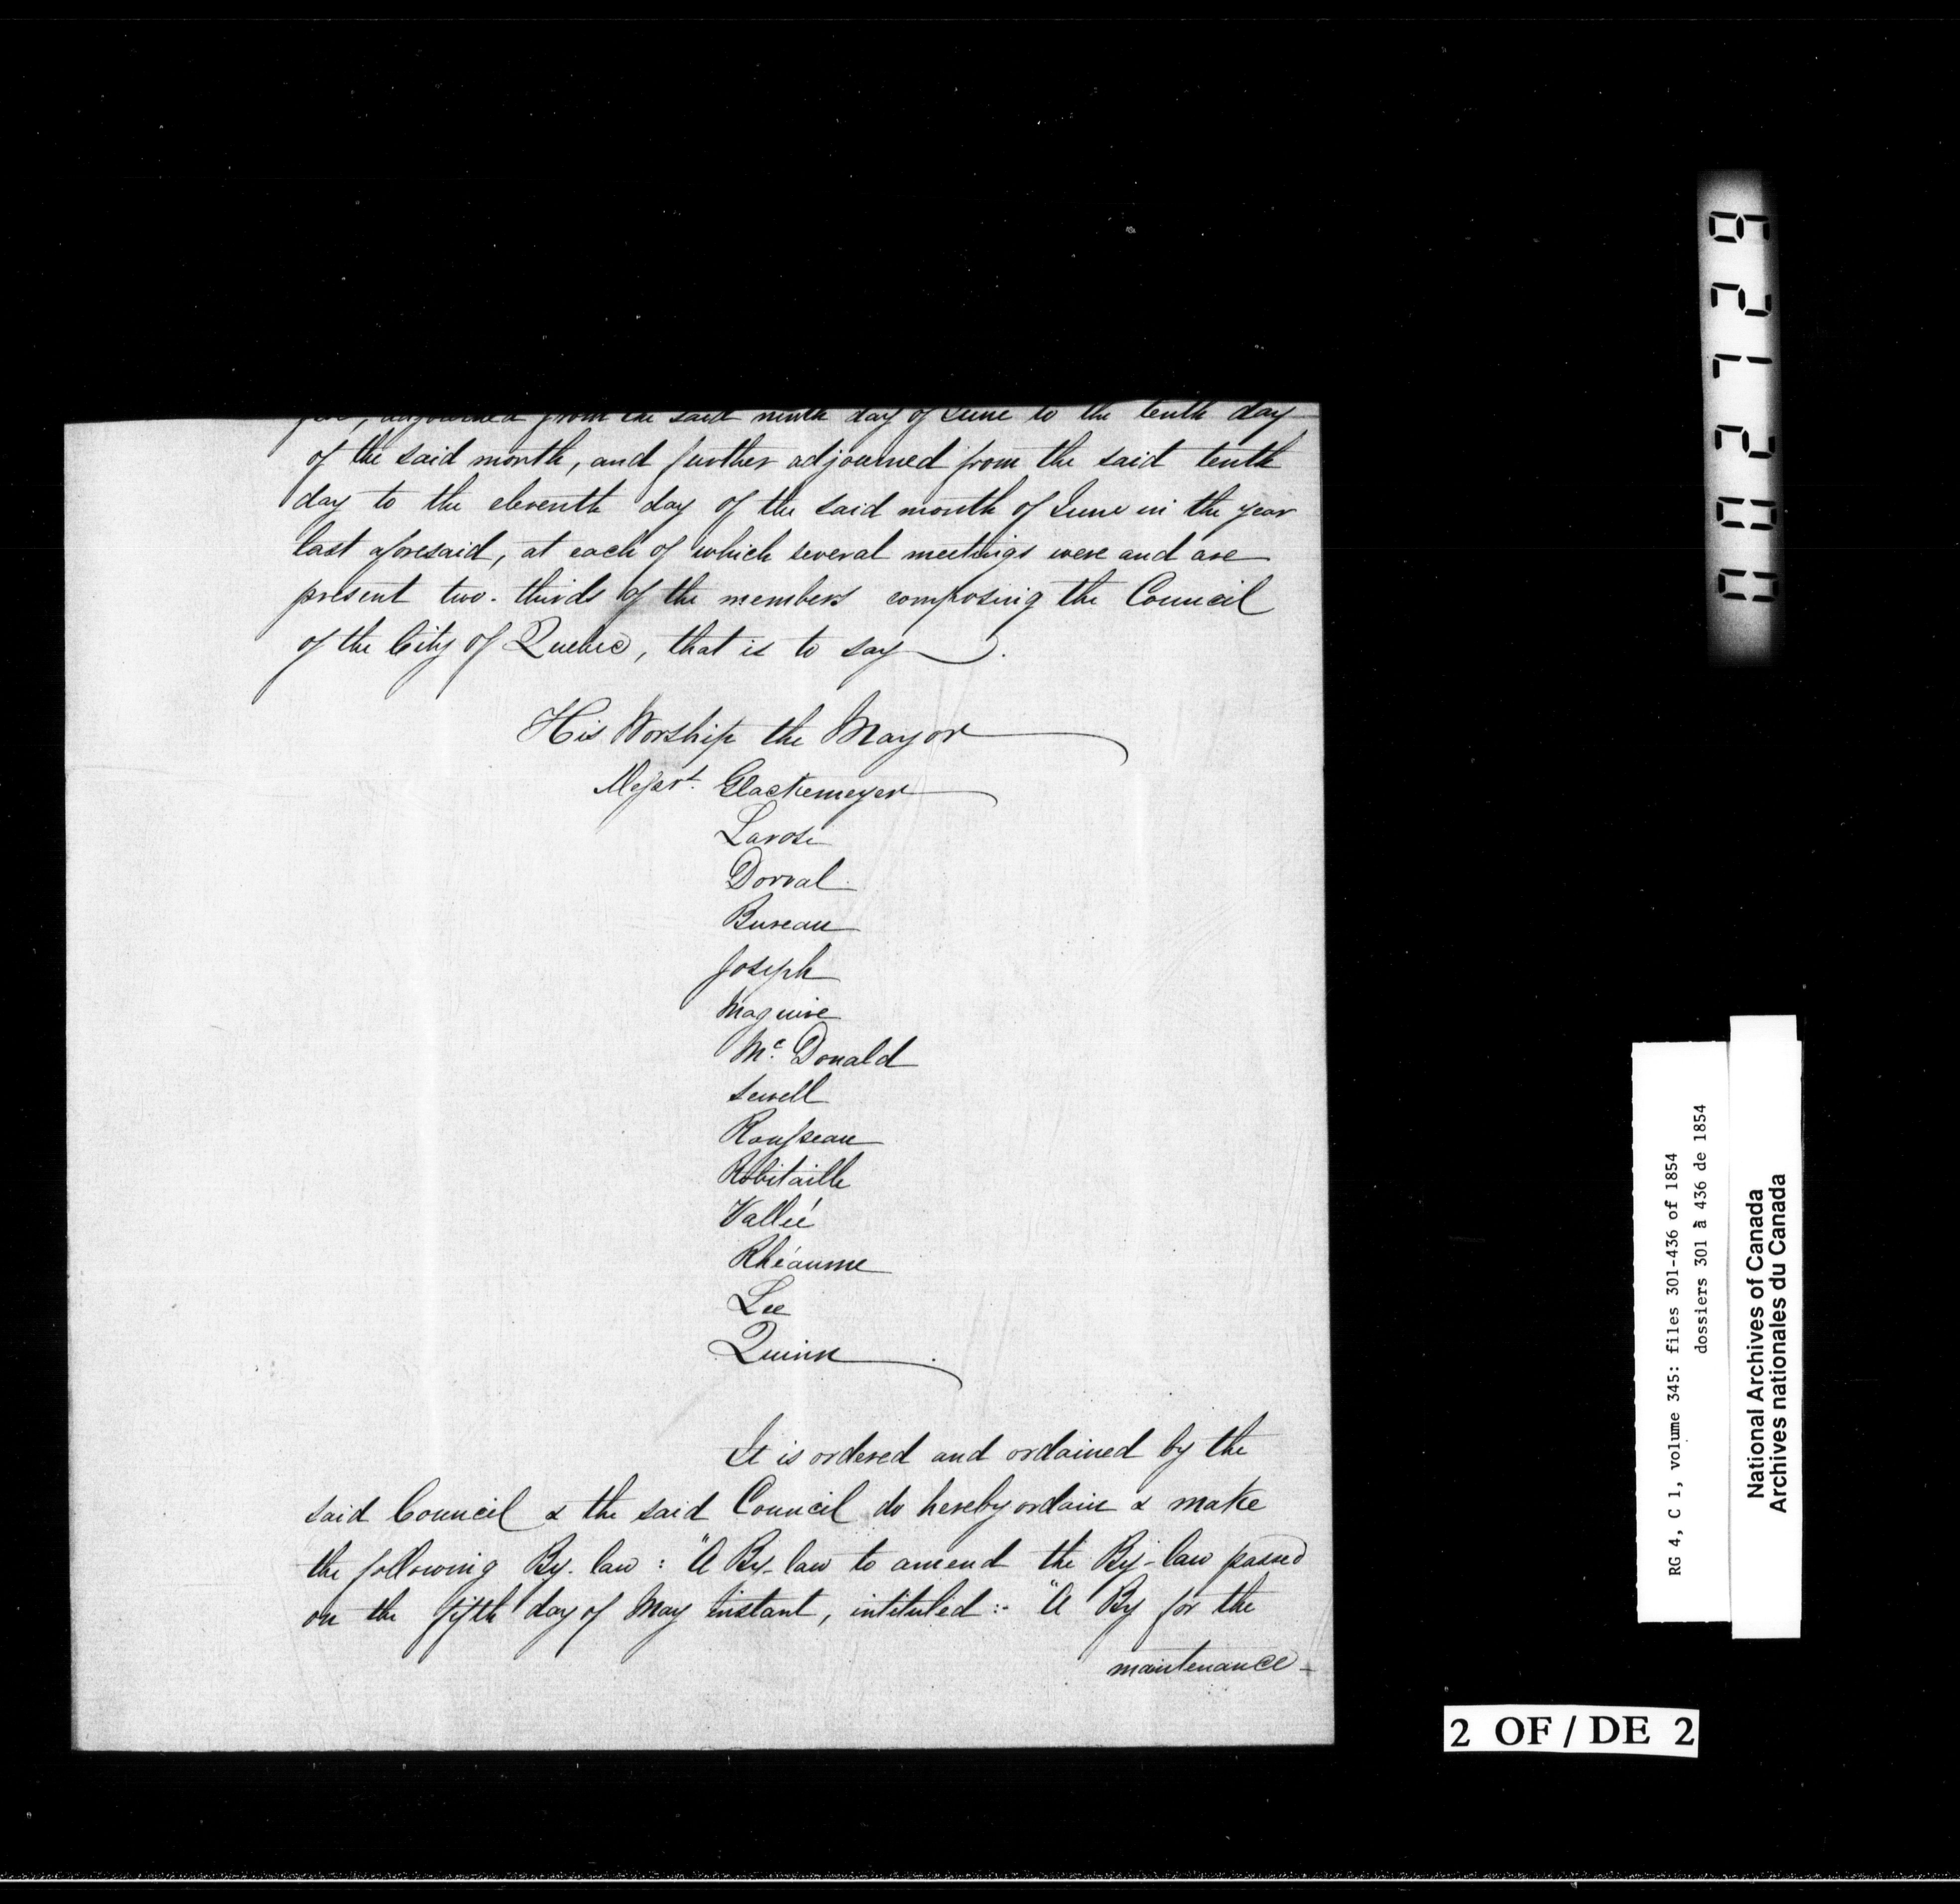 adjourned from the said ninth day of June to the tenth day
of the said month, and further adjourned from the said tenth
day to the eleventh day of the said month of June in the year
last aforesaid, at each of which several meetings were and are
present two-thirds of the members composing the Council
of the City of Quebec, that is to say
His Worship the Mayor
Messrs. Glackemeyer
Larose
Dorval
Bureau
Joseph
Maguire
Mc. Donald
Sewell
Rousseau
Robitaille
Vallée
Rhéaume
Lee
Quinn
It is ordered and ordained by the
said Council & the said Council do hereby ordain & make
the following By-law : "A By-law to amend the By-law passed
on the fifth day of May instant, intituled :- "A By for the
maintenance-
2 OF / DE 2
RG 4, C 1, volume 345: files 301-436 of 1854
dossiers 301 à 436 de 1854
National Archives of Canada
Archives nationales du Canada